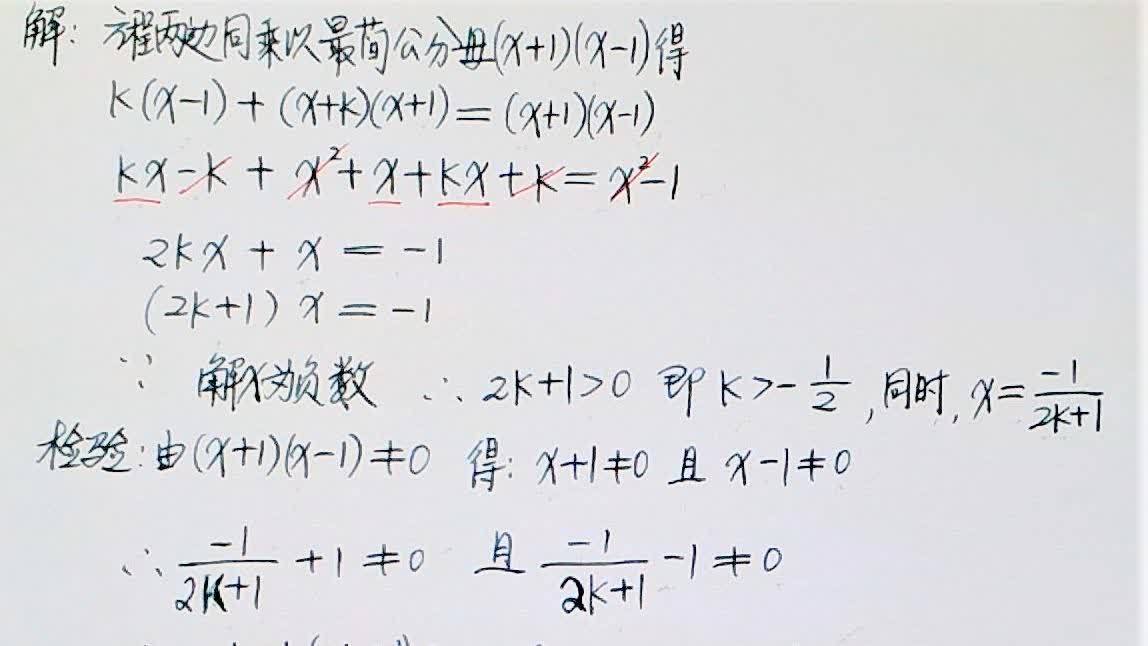 解: 方程两边同乘以最简公分母(x+1)(x-1)得
k(x-1) + (x+k)(x+1) = (x+1)(x-1)
kx-k + x²+x+kx+k = x²-1
2kx + x = -1
(2k+1) x = -1
∵ 解x为负数 ∴ 2k+1>0 即 k>-1/2, 同时, x=-1/(2k+1)
检验: 由(x+1)(x-1)≠0 得: x+1≠0 且 x-1≠0
∴ -1/(2k+1) +1≠0 且 -1/(2k+1) -1≠0